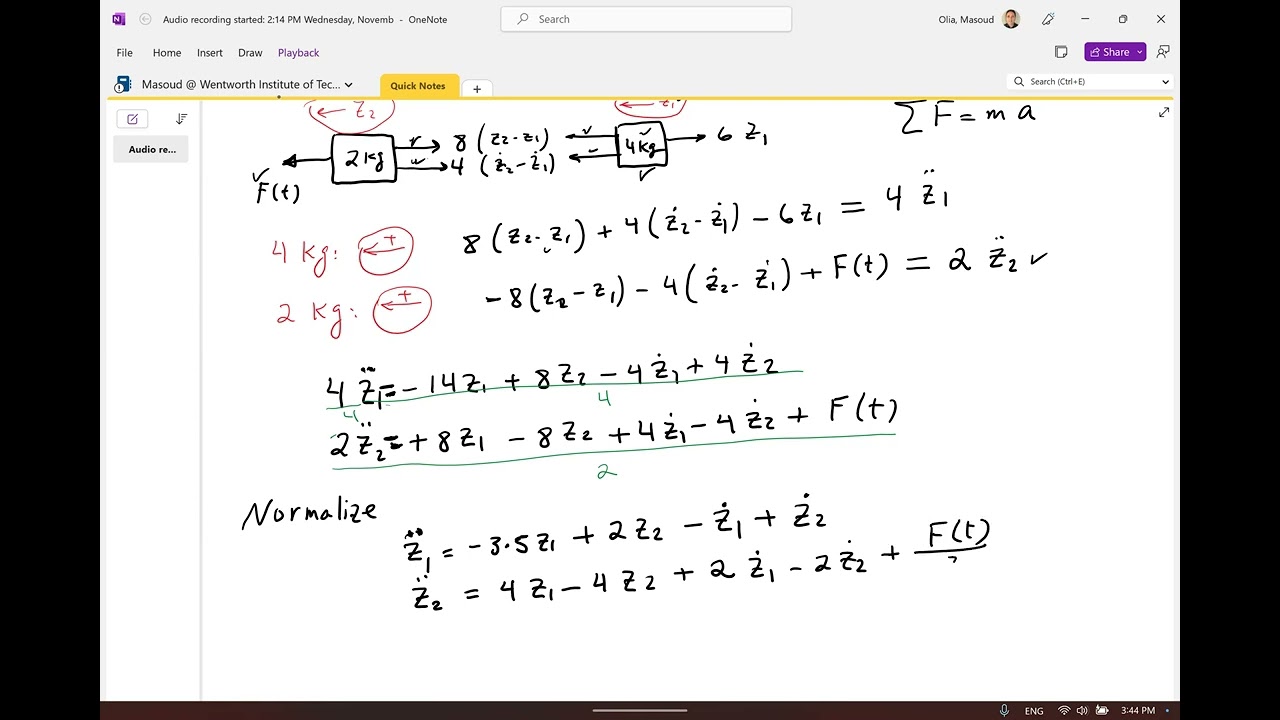 Audio recording started: 2:14 PM Wednesday, Novemb - OneNote
Search
Olia, Masoud
File Home Insert Draw Playback
Share
Masoud @ Wentworth Institute of Tec...
Quick Notes
+
Search (Ctrl+E)
Audio re...
← Z₂
← Z₁
∑ F = m a
F(t)
2 kg
8 (Z₂ - Z₁)
4 (Ż₂ - Ż₁)
4 kg
6 Z₁
4 kg: ← +
8 (Z₂ - Z₁) + 4 (Ż₂ - Ż₁) - 6 Z₁ = 4 Z̈₁
2 kg: ← +
- 8 (Z₂ - Z₁) - 4 (Ż₂ - Ż₁) + F(t) = 2 Z̈₂ ✓
4 Z̈₁ = - 14 Z₁ + 8 Z₂ - 4 Ż₁ + 4 Ż₂
4 4
2 Z̈₂ = + 8 Z₁ - 8 Z₂ + 4 Ż₁ - 4 Ż₂ + F(t)
2
Normalize
Z̈₁ = - 3.5 Z₁ + 2 Z₂ - Ż₁ + Ż₂
Z̈₂ = 4 Z₁ - 4 Z₂ + 2 Ż₁ - 2 Ż₂ + F(t)
ENG
3:44 PM